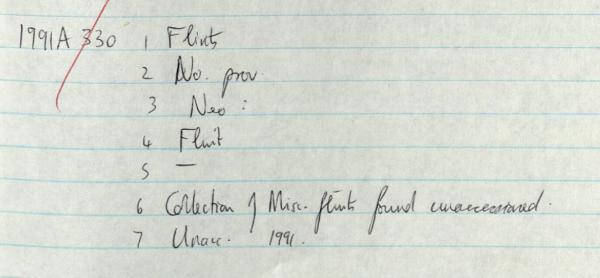 1991A 330 1 Flints
2 No. prov.
3 Neo :
4 Flint
5 —
6 Collection of Misc. flints found unaccessioned.
7 Unacc. 1991.